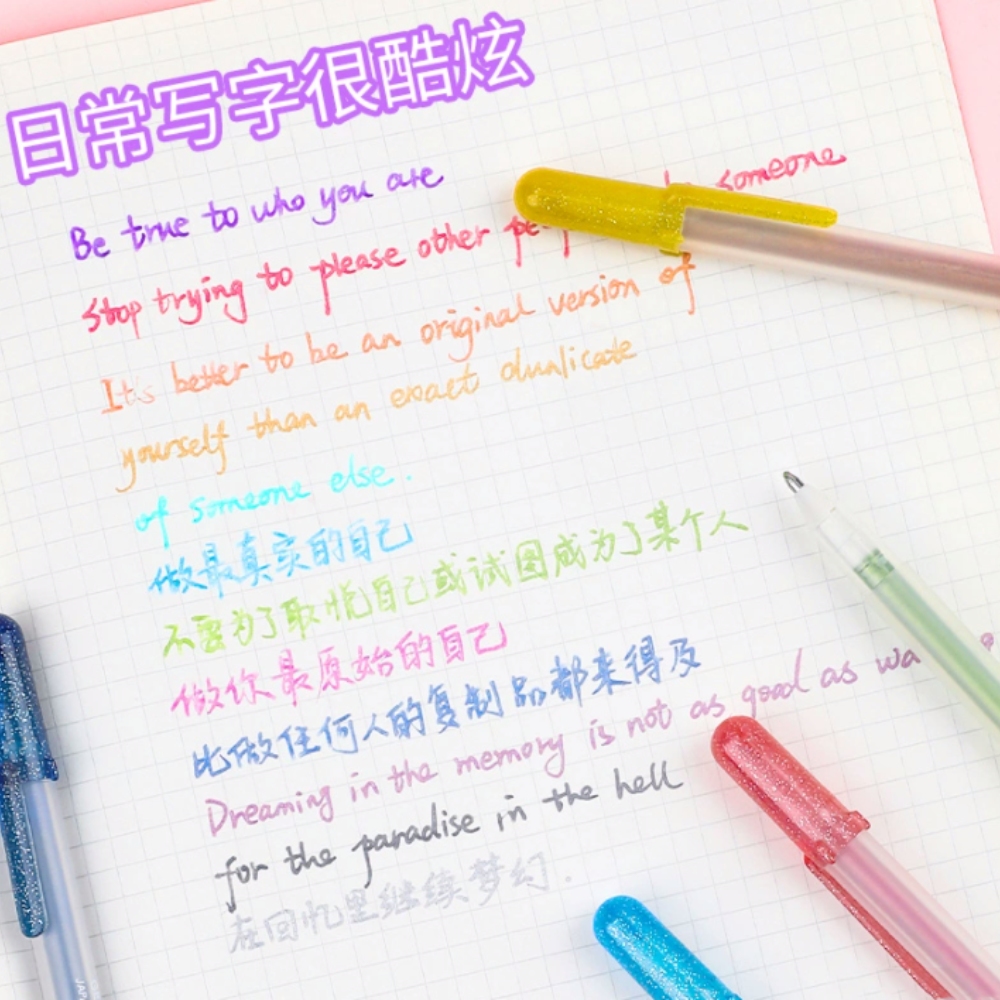 日常写字很酷炫
Be true to who you are
someone
Stop trying to please other
Its better to be an original version of
yourself than an exact dunlicate
of someone else.
做最真实的自己
不需为了取悦自己或试图成为了某个人
做你最原始的自己
比做任何人的复制品都来得及
Dreaming in the memory is not as good as
for the paradise in the hell
在回忆里继续梦幻.